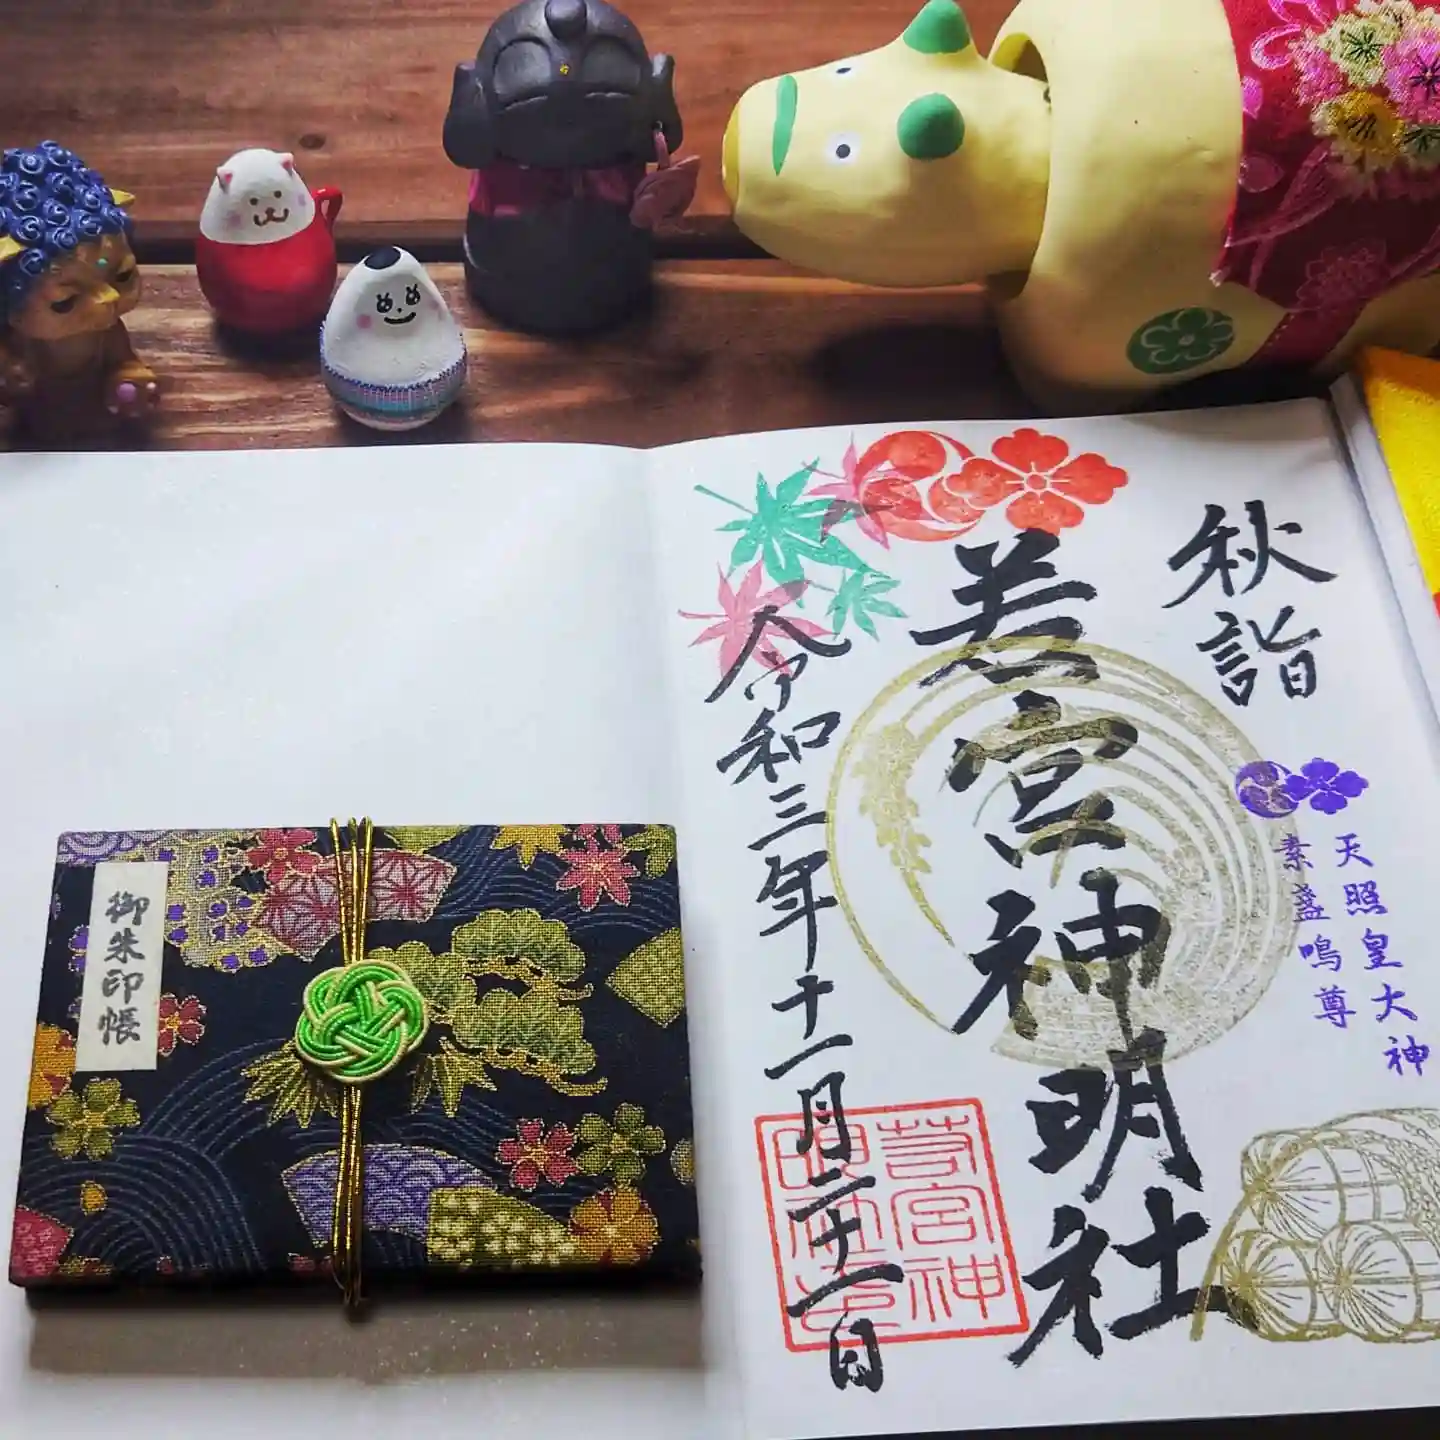 秋詣
天照皇大神
素盞鳴尊
若宮神明社
令和三年十一月二十一日
若宮神
明社
御朱印帳